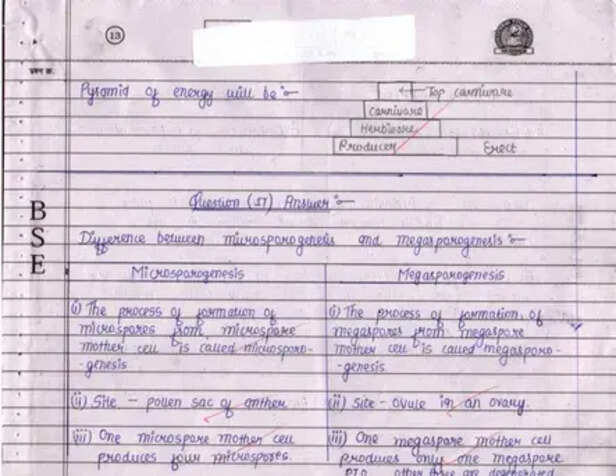 13
प्रश्न क्र.
Pyramid of energy will be :-
Top carnivore
Carnivore
Herbivore
Producer Erect
BSE
Question (17) Answer :-
Difference between microsporogenesis and megasporogenesis :-
Microsporogenesis Megasporogenesis
(i) The process of formation of (i) The process of formation of
microspores from microspore megaspores from megaspore
mother cell is called microsporo- mother cell is called megasporo-
-genesis -genesis
(ii) Site - pollen sac of anther (ii) Site - ovule in an ovary.
(iii) One microspore mother cell (iii) One megaspore mother cell
produces four microspores. produces only one megaspore
P.T.O. other three are